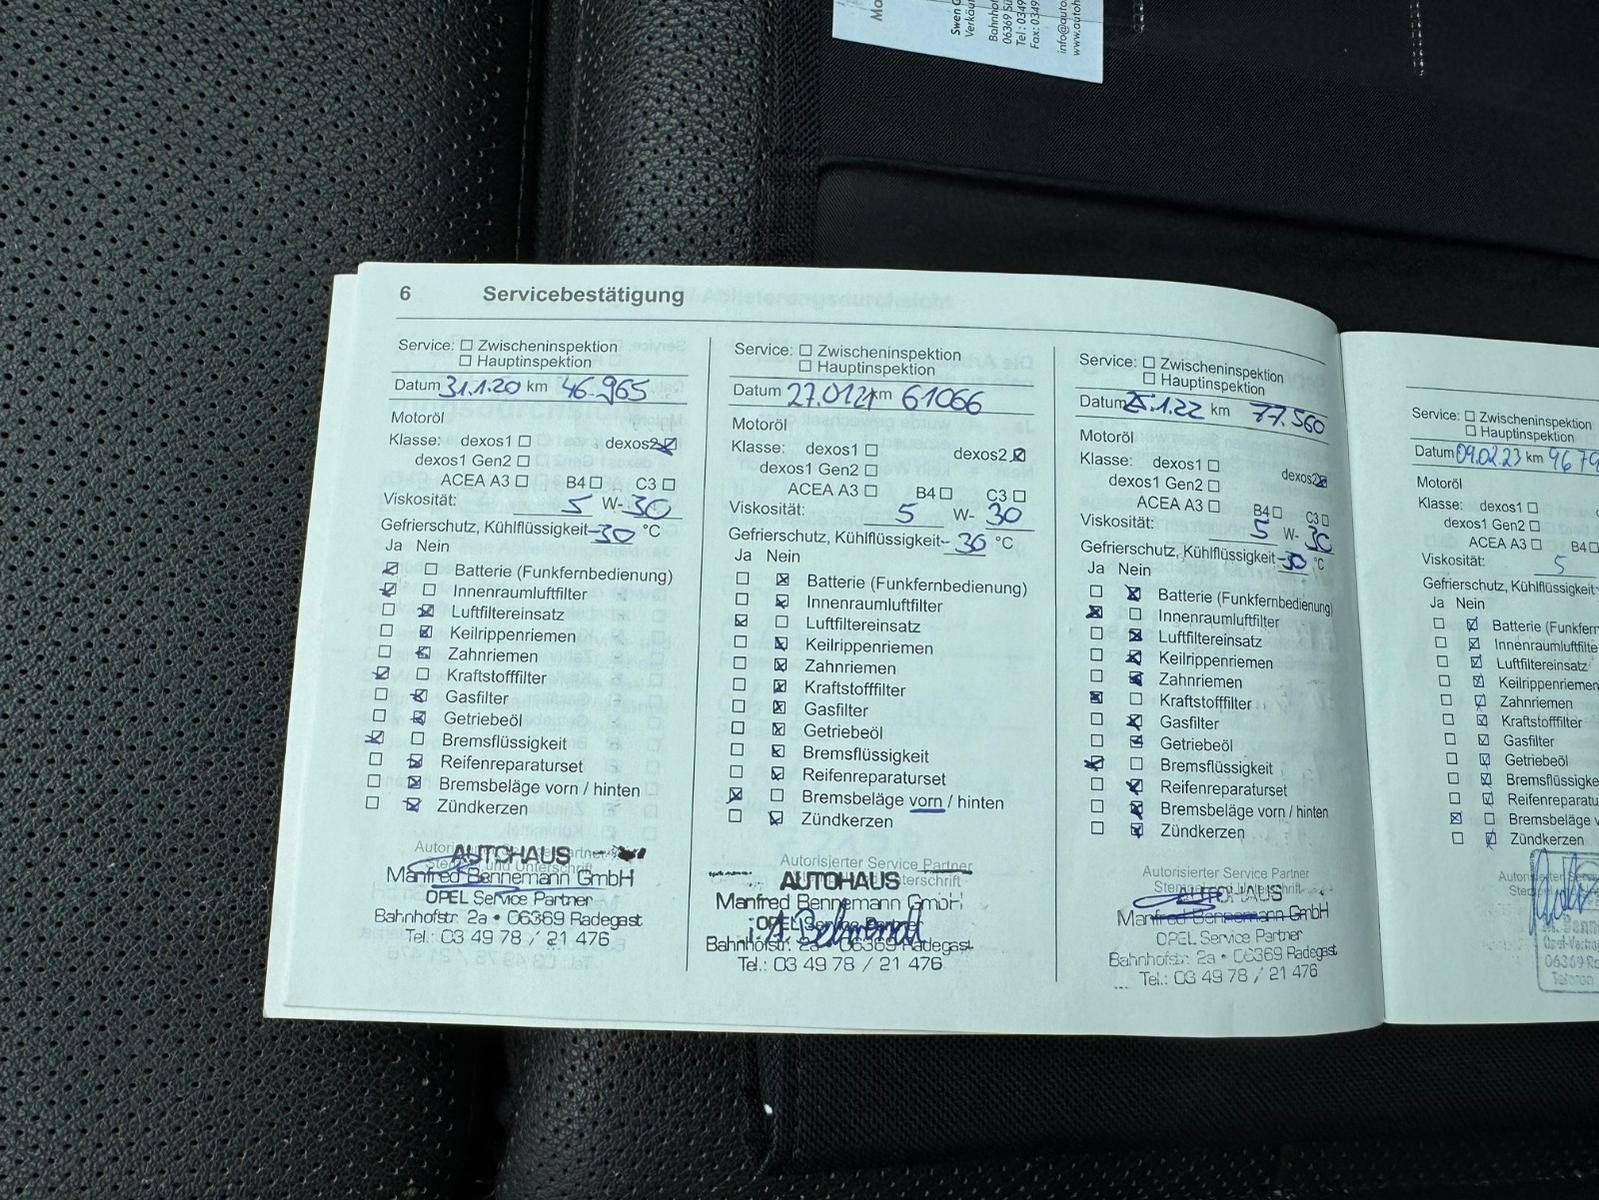 Swen G
Verkäu
Bahnho
06369 Sü
Tel.: 0349
Fax: 0349
info@auto
www.autoh
6 Servicebestätigung
Service: ☐ Zwischeninspektion
☐ Hauptinspektion
Datum 31.1.20 km 46.965
Motoröl
Klasse: dexos1 ☐ dexos2 ☒
dexos1 Gen2 ☐
ACEA A3 ☐ B4 ☐ C3 ☐
Viskosität: 5 W- 30
Gefrierschutz, Kühlflüssigkeit -30 °C
Ja Nein
☒ ☐ Batterie (Funkfernbedienung)
☒ ☐ Innenraumluftfilter
☐ ☒ Luftfiltereinsatz
☐ ☒ Keilrippenriemen
☐ ☒ Zahnriemen
☒ ☐ Kraftstofffilter
☐ ☒ Gasfilter
☐ ☒ Getriebeöl
☒ ☐ Bremsflüssigkeit
☐ ☒ Reifenreparaturset
☐ ☒ Bremsbeläge vorn / hinten
☐ ☒ Zündkerzen
Autorisierter Service Partner
Stempel und Unterschrift
AUTOHAUS
Manfred Bennemann GmbH
OPEL Service Partner
Bahnhofstr. 2a • 06369 Radegast
Tel.: 03 49 78 / 21 476
Service: ☐ Zwischeninspektion
☐ Hauptinspektion
Datum 27.01.21 km 61066
Motoröl
Klasse: dexos1 ☐ dexos2 ☒
dexos1 Gen2 ☐
ACEA A3 ☐ B4 ☐ C3 ☐
Viskosität: 5 W- 30
Gefrierschutz, Kühlflüssigkeit - 30 °C
Ja Nein
☐ ☒ Batterie (Funkfernbedienung)
☐ ☒ Innenraumluftfilter
☒ ☐ Luftfiltereinsatz
☐ ☒ Keilrippenriemen
☐ ☒ Zahnriemen
☐ ☒ Kraftstofffilter
☐ ☒ Gasfilter
☐ ☒ Getriebeöl
☐ ☒ Bremsflüssigkeit
☐ ☒ Reifenreparaturset
☒ ☐ Bremsbeläge vorn / hinten
☐ ☒ Zündkerzen
Autorisierter Service Partner
Stempel und Unterschrift
AUTOHAUS
Manfred Bennemann GmbH
OPEL Service Partner
Bahnhofstr. 2a • 06369 Radegast
Tel.: 03 49 78 / 21 476
Service: ☐ Zwischeninspektion
☐ Hauptinspektion
Datum 25.1.22 km 77.560
Motoröl
Klasse: dexos1 ☐ dexos2 ☒
dexos1 Gen2 ☐
ACEA A3 ☐ B4 ☐ C3 ☐
Viskosität: 5 W- 30
Gefrierschutz, Kühlflüssigkeit -30 °C
Ja Nein
☐ ☒ Batterie (Funkfernbedienung)
☒ ☐ Innenraumluftfilter
☐ ☒ Luftfiltereinsatz
☐ ☒ Keilrippenriemen
☐ ☒ Zahnriemen
☒ ☐ Kraftstofffilter
☐ ☒ Gasfilter
☐ ☒ Getriebeöl
☒ ☐ Bremsflüssigkeit
☐ ☒ Reifenreparaturset
☐ ☒ Bremsbeläge vorn / hinten
☐ ☒ Zündkerzen
Autorisierter Service Partner
Stempel und Unterschrift
AUTOHAUS
Manfred Bennemann GmbH
OPEL Service Partner
Bahnhofstr. 2a • 06369 Radegast
Tel.: 03 49 78 / 21 476
Service: ☐ Zwischeninspektion
☐ Hauptinspektion
Datum 09.02.23 km 9679
Motoröl
Klasse: dexos1 ☐
dexos1 Gen2 ☐
ACEA A3 ☐ B4 ☐
Viskosität: 5
Gefrierschutz, Kühlflüssigkeit
Ja Nein
☐ ☒ Batterie (Funkfern
☐ ☒ Innenraumluftfilte
☐ ☒ Luftfiltereinsatz
☐ ☒ Keilrippenriemen
☐ ☒ Zahnriemen
☐ ☒ Kraftstofffilter
☐ ☒ Gasfilter
☐ ☒ Getriebeöl
☐ ☒ Bremsflüssigke
☐ ☒ Reifenreparatu
☒ ☐ Bremsbeläge v
☐ ☒ Zündkerzen
06369 Ra